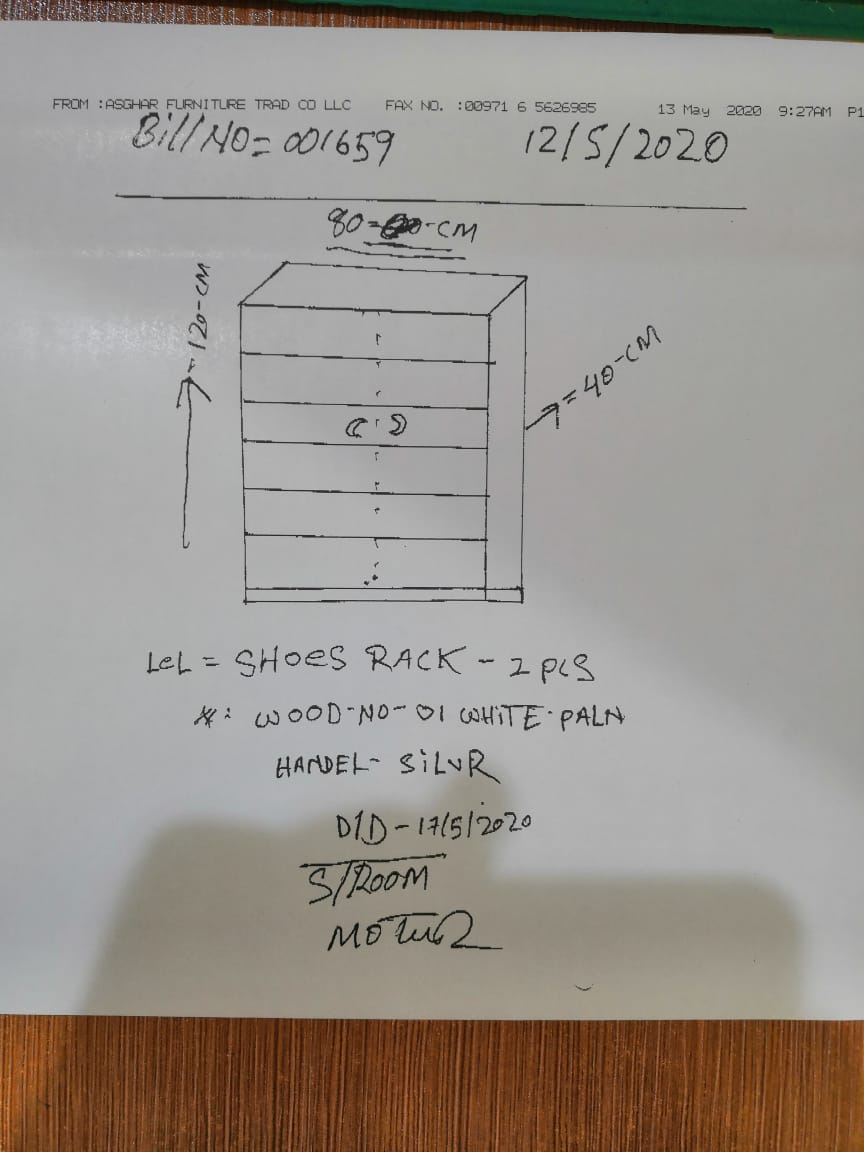 FROM :ASGHAR FURNITURE TRAD CO LLC FAX NO. :00971 6 5626985 13 May 2020 9:27AM P1
Bill NO= 001659 12/5/2020
80-CM
= 120-CM
= 40-CM
LeL = SHOES RACK - 2 pcs
WOOD-NO-01 WHITE-PALN
HANDEL- SILVR
D/D-17/5/2020
S/ROOM